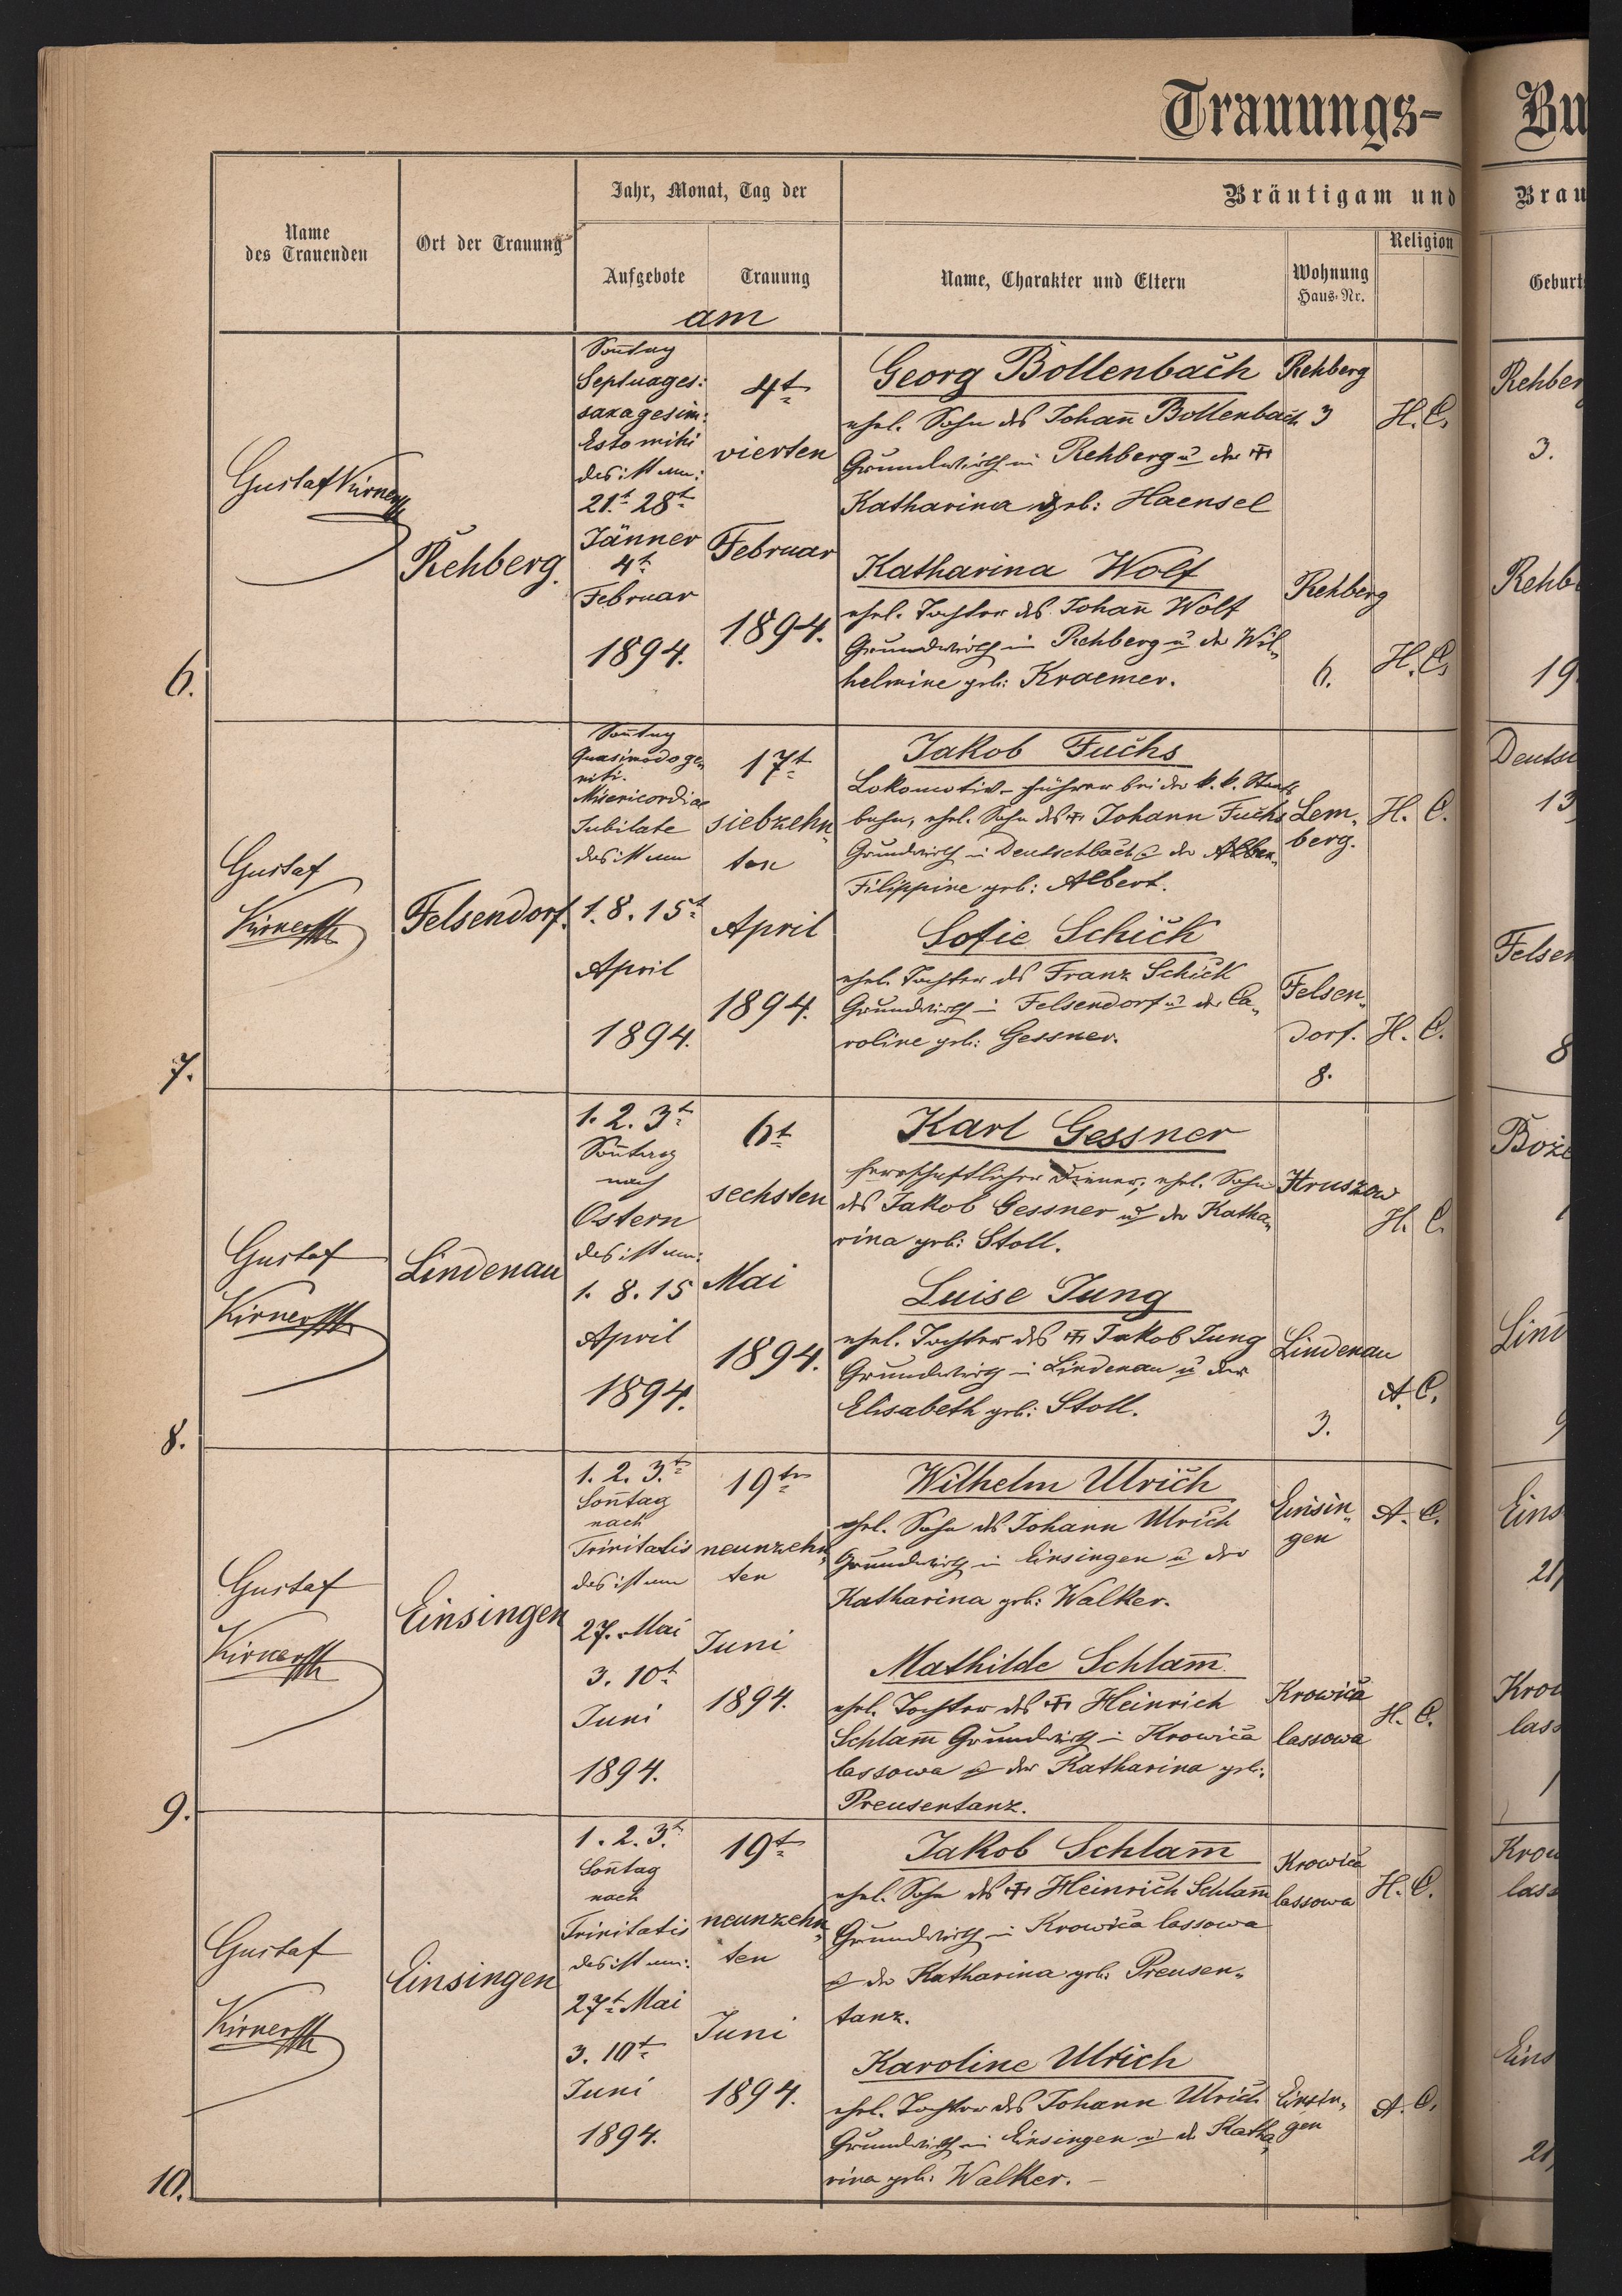 Trauungs-
Bu
Name
des Trauenden
Ort der Trauung
Jahr, Monat, Tag der
Aufgebote
Trauung
am
Bräutigam und
Name, Charakter und Eltern
Wohnung
Haus-Nr.
Religion
Brau
Geburt
6.
Gustaf Kirner
Rehberg.
Sonntag
Septuages:
saxagesim:
Estomihi
das ist am:
21t 28t
Jänner
4t
Februar
1894.
4t
vierten
Februar
1894.
Georg Bollenbach
ehel. Sohn des Johann Bollenbach
Grundwirth in Rehberg u der
Katharina geb: Haensel
Rehberg
3
H. C.
Katharina Wolf
ehel. Tochter des Johann Wolf
Grundwirth in Rehberg u der Wil„
helmine geb: Kraemer.
Rehberg
6.
H. C.
Rehber
3.
Rehb
19
7.
Gustaf
Kirner
Felsendorf.
Sonntag
Quasimodoge
niti.
Misericordiae
Jubilate
das ist am
1. 8. 15t
April
1894.
17t
siebzehn„
ten
April
1894.
Jakob Fuchs
Lokomotiv-führer bei der k. k. Staats
bahn, ehel. Sohn des Johann Fuchs
Grundwirth in Deutschbach u der
Filippine geb: Albert.
Lem„
berg.
H. C.
Sofie Schick
ehel. Tochter des Franz Schick
Grundwirth in Felsendorf u der Ca„
roline geb: Gessner.
Felsen„
dorf.
8.
H. C.
Deutsc
13
Felsen
8
8.
Gustaf
Kirner
Lindenau
1. 2. 3t
Sonntag
nach
Ostern
das ist am:
1. 8. 15
April
1894.
6t
sechsten
Mai
1894.
Karl Gessner
herrschaftlicher Diener, ehel. Sohn
des Jakob Gessner u der Katha„
rina geb: Stoll.
Hruszow
H. C.
Luise Jung
ehel. Tochter des Jakob Jung
Grundwirth in Lindenau u der
Elisabeth geb: Stoll.
Lindenau
3.
A. C.
Lind
9
9.
Gustaf
Kirner
Einsingen
1. 2. 3.t
Sonntag
nach
Trinitatis
das ist am
27. Mai
3. 10t
Juni
1894.
19tn
neunzehn„
ten
Juni
1894.
Wilhelm Ulrich
ehel. Sohn des Johann Ulrich
Grundwirth in Einsingen u der
Katharina geb: Walker.
Einsin„
gen
A. C.
Mathilde Schlam̅
ehel. Tochter des Heinrich
Schlam̅ Grundwirth in Krowica
lassowa u der Katharina geb:
Preusentanz.
Krowica
lassowa
H. C.
Eins
21
Krow
lass
10.
Gustaf
Kirner
Einsingen
1. 2. 3.t
Sonntag
nach
Trinitatis
das ist am:
27t Mai
3. 10t
Juni
1894.
19t
neunzehn„
ten
Juni
1894.
Jakob Schlam̅
ehel. Sohn des Heinrich Schlam̅
Grundwirth in Krowica lassowa
u der Katharina geb: Preusen„
tanz.
Krowica
lassowa
H. C.
Karoline Ulrich
ehel. Tochter des Johann Ulrich
Grundwirth in Einsingen u der Katha„
rina geb: Walker.
Einsin„
gen
A. C.
Krow
lass
Eins
21